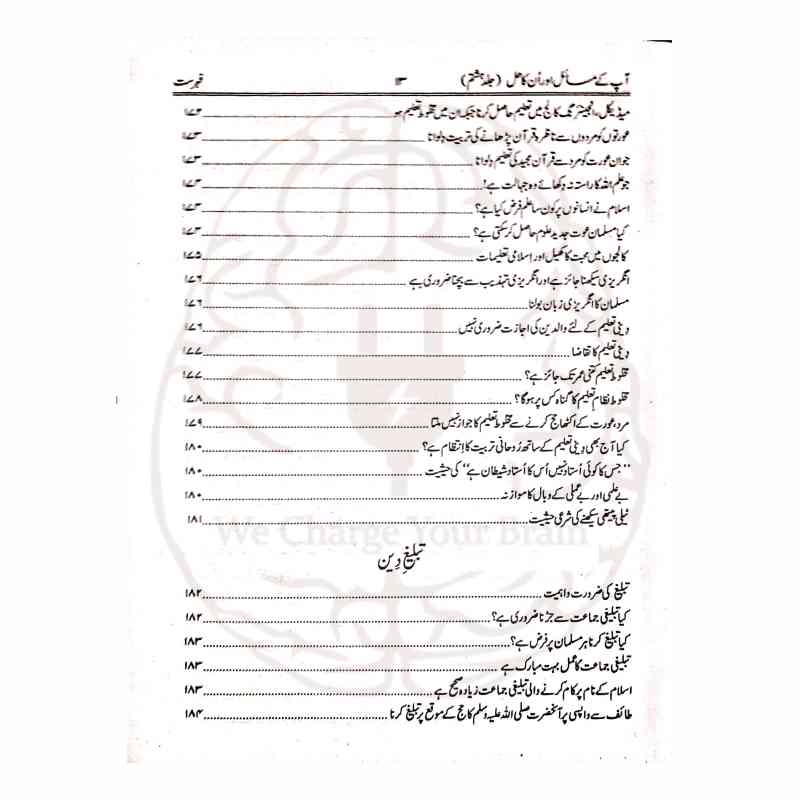 آپ کے مسائل اور اُن کا حل (جلد ہشتم) ۱۳ فہرست
میڈیکل، انجینئرنگ کالج میں تعلیم حاصل کرنا جبکہ ان میں مخلوط تعلیم ہو ۱۷۲
عورتوں کو مردوں سے ناظرہ قرآن پڑھانے کی تربیت دِلوانا ۱۷۳
جوان عورت کو مرد سے قرآن مجید کی تعلیم دِلوانا ۱۷۳
جو علم اللہ کا راستہ نہ دِکھائے وہ جہالت ہے! ۱۷۳
اسلام نے انسانوں پر کون سا علم فرض کیا ہے؟ ۱۷۳
کیا مسلمان عورت جدید علوم حاصل کرسکتی ہے؟ ۱۷۳
کالجوں میں محبت کا کھیل اور اسلامی تعلیمات ۱۷۵
انگریزی سیکھنا جائز ہے اور انگریزی تہذیب سے بچنا ضروری ہے ۱۷۶
مسلمان کا انگریزی زبان بولنا ۱۷۶
دِینی تعلیم کے لئے والدین کی اجازت ضروری نہیں ۱۷۶
دِینی تعلیم کا تقاضا ۱۷۷
مخلوط تعلیم کتنی عمر تک جائز ہے؟ ۱۷۷
مخلوط نظامِ تعلیم کا گناہ کس پر ہوگا؟ ۱۷۸
مرد، عورت کے اکٹھا حج کرنے سے مخلوط تعلیم کا جواز نہیں ملتا ۱۷۹
کیا آج بھی دِینی تعلیم کے ساتھ رُوحانی تربیت کا اِنتظام ہے؟ ۱۸۰
”جس کا کوئی اُستاد نہیں اُس کا اُستاد شیطان ہے“ کی حیثیت ۱۸۰
بے علمی اور بے عملی کے وبال کا موازنہ ۱۸۰
ٹیلی پیتھی سیکھنے کی شرعی حیثیت ۱۸۱
We Charge Your Brain
تبلیغِ دِین
تبلیغ کی ضرورت و اہمیت ۱۸۲
کیا تبلیغی جماعت سے جڑنا ضروری ہے؟ ۱۸۲
کیا تبلیغ کرنا ہر مسلمان پر فرض ہے؟ ۱۸۳
تبلیغی جماعت کا عمل بہت مبارک ہے ۱۸۳
اسلام کے نام پر کام کرنے والی تبلیغی جماعت زیادہ صحیح ہے ۱۸۳
طائف سے واپسی پر آنحضرت صلی اللہ علیہ وسلم کا حج کے موقع پر تبلیغ کرنا ۱۸۴